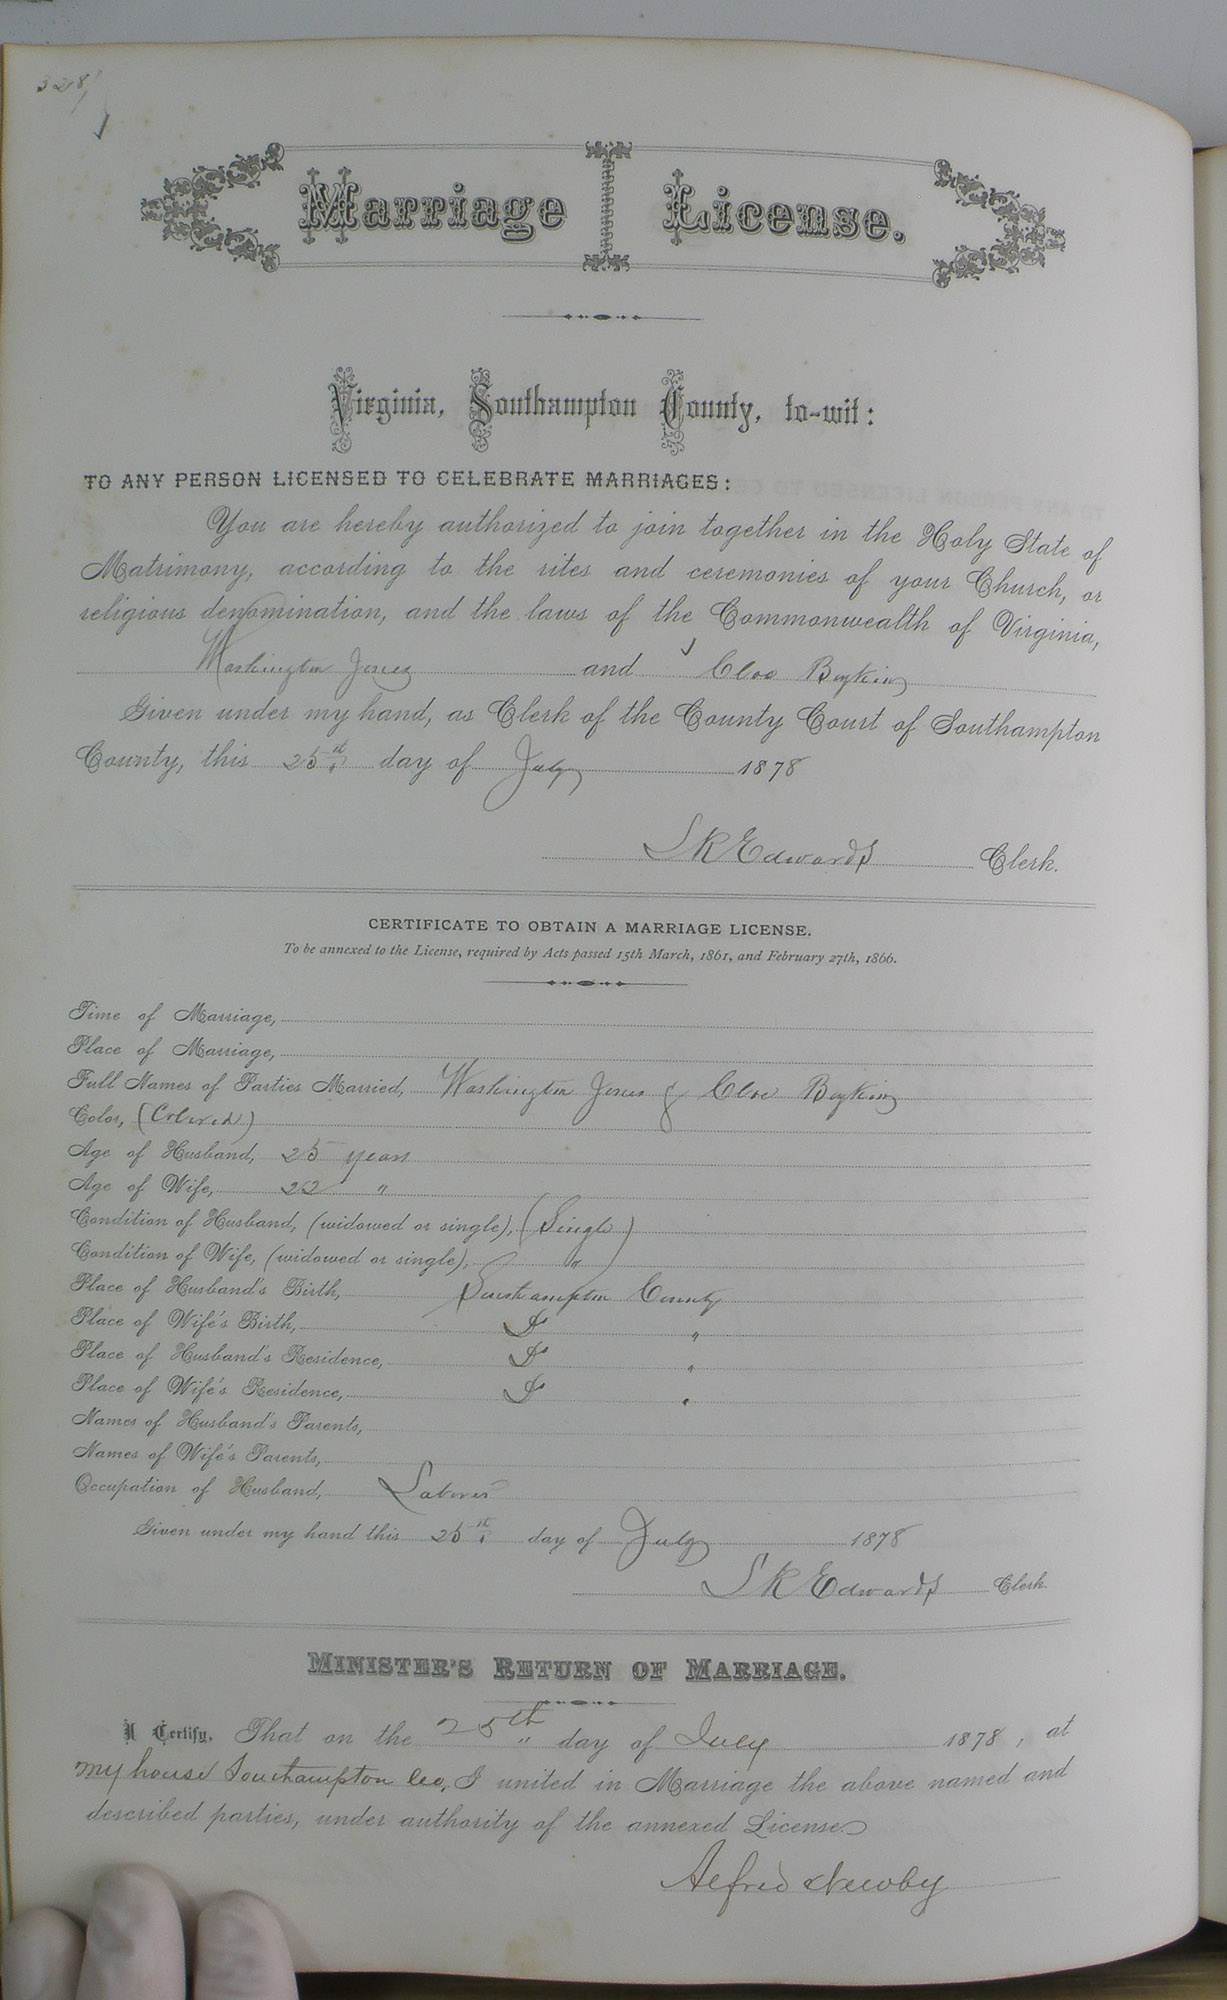 328
Marriage License.
Virginia, Southampton County, to-wit:
TO ANY PERSON LICENSED TO CELEBRATE MARRIAGES:
You are hereby authorized to join together in the Holy State of
Matrimony, according to the rites and ceremonies of your Church, or
religious denomination, and the laws of the Commonwealth of Virginia,
Washington Jones and Cloe Boykin
Given under my hand, as Clerk of the County Court of Southampton
County, this 25th day of July 1878
L R Edwards Clerk.
CERTIFICATE TO OBTAIN A MARRIAGE LICENSE.
To be annexed to the License, required by Acts passed 15th March, 1861, and February 27th, 1866.
Time of Marriage,
Place of Marriage,
Full Names of Parties Married, Washington Jones & Cloe Boykin
Color, (Colored)
Age of Husband, 25 years
Age of Wife, 22 "
Condition of Husband, (widowed or single), (Single)
Condition of Wife, (widowed or single), "
Place of Husband's Birth, Southampton County
Place of Wife's Birth, Do "
Place of Husband's Residence, Do "
Place of Wife's Residence, Do "
Names of Husband's Parents,
Names of Wife's Parents,
Occupation of Husband, Laborer
Given under my hand this 25th day of July 1878
L R Edwards Clerk.
MINISTER'S RETURN OF MARRIAGE.
I Certify, That on the 25th " day of July 1878, at
my house Southampton Co, I united in Marriage the above named and
described parties, under authority of the annexed License.
Alfred Newby